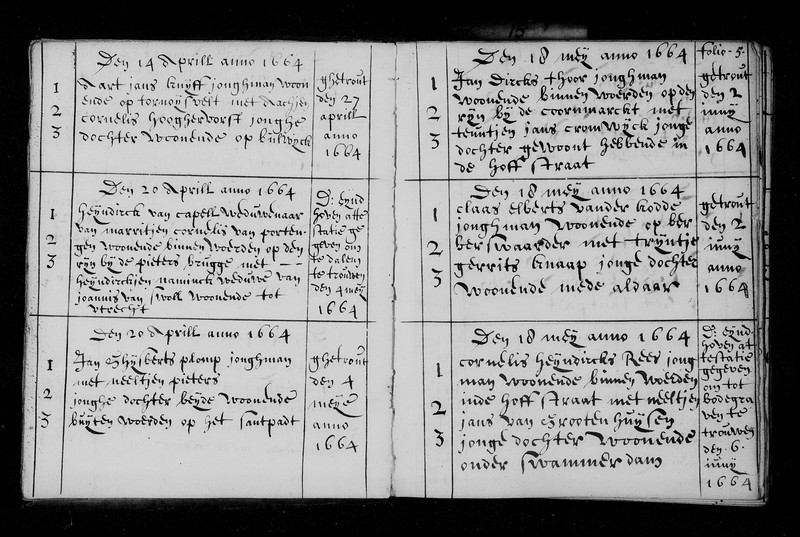 Den 14 Aprill anno 1664
1
Aart jans knijff jonghman woon
ende op tornoijsveit met Aachjen
2
cornelis hooghervorst jonghe
3
dochter woonende op kulwijck
ghetrout
den 27
aprill
anno
1664
Den 20 Aprill anno 1664
1
heijndirck van capell weduwenaar
van marritjen cornelis van porten-
2
gen woonende binnen woerden op den
3
rijn bij de pieters brugge met
heijndirckjen naminck weduwe van
joannis van swoll woonende tot
utrecht
D: eijnd
hoven atte
statie ge
geven om
te dalem
te trouwen
den 4 meij
1664
Den 20 Aprill anno 1664
1
Jan Ghijsberts plomp jonghman
met neeltjen pieters
2
jonghe dochter beijde woonende
3
buijten woerden op het santpadt
ghetrout
den 4
meije
anno
1664
folio · 5 ·
Den 18 meij anno 1664
1
Jan Dircks thoor jonghman
woonende binnen woerden op den
2
rijn bij de coornmarckt met
3
teuntjen jans cromwijck jonge
dochter gewoont hebbende in
de hoff straat
getrout
den 2
junij
anno
1664
Den 18 meij anno 1664
1
claas elberts vander kodde
jonghman woonende op ber
2
berswaarder met trijntje
3
gerrits knaap jonge dochter
woonende mede aldaar
getrout
den 2
junij
anno
1664
Den 18 meij anno 1664
1
cornelis heijndircks Rees jong
man woonende binnen woerden
2
inde hoff straat met neeltjen
jans van Grooten huijsen
3
jonge dochter woonende
onder swammerdam
D: eijnd-
hoven at
testatie
gegeven
om tot
bodegra
ven te
trouwen
den · 6 ·
junij
1664